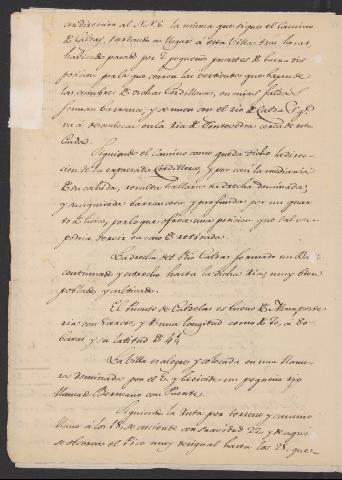 en direccion al N.N.E. la misma que sigue el Camino
de Caldas, tardando en llegar á esta Villa tres horas,
habiendo pasado por 7 pequeños puentes de buena dis
posicion por la que corren las vertientes que bajan de
las cumbres de dichas Cordilleras, en cuias faldas
forman barranca, y se unen con el rio de Caldas q.e
va á desembocar en la Ria de Pontevedra cerca de esta
Ciudad.
Siguiendo el Camino como queda dicho la direc-
cion de la expresada Cordillera, y por casi la mediania
de su caida, resulta hallarse su derecha dominada,
y su izquierda barrancosa y profunda por un quar
to de hora, por lo que ofrece una posicion que tal vez
podria servir en caso de retirada.
La derecha del Rio Caldas formado un
continuado y estrecho hasta la dicha Ria, muy bien
poblado y cultivado.
El Puente de Caldelas es bueno de Mamposte
ria con arcos, y de una longitud como de 70, a 80
baras y su latitud de 4 1/2
La Villa es alegre y colocada en una llanu
ra dominada por el E. y la divide un pequeño rio
llamado Bermaño con Puente.
Siguiendo la ruta por terreno y camino
llano á los 18, se asciende con suavidad 22, y de aqui
se observa el Piso muy desigual hasta los 28, que-